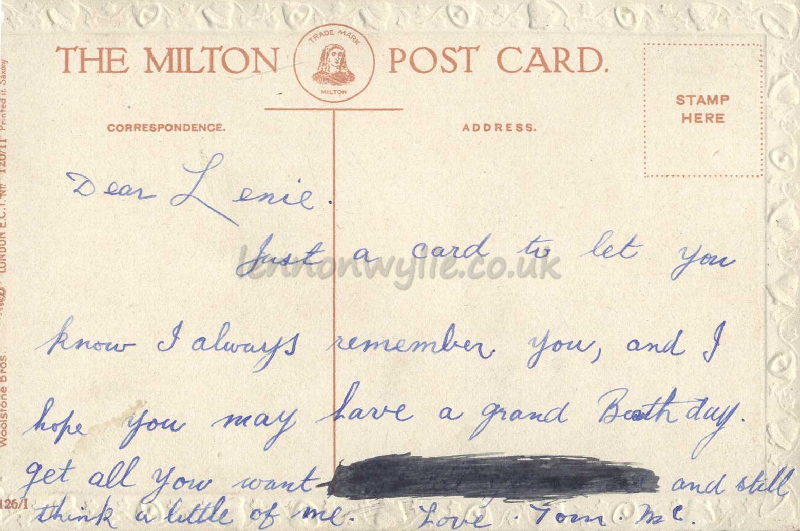 THE MILTON POST CARD.
TRADE MARK
MILTON
STAMP
HERE
CORRESPONDENCE.
ADDRESS.
Dear Lenie.
Just a card to let you
lennonwylie.co.uk
know I always remember you, and I
hope you may have a grand Buthday.
get all you want and still
think a little of me. Love Tom Mc.
Woolstone Bros. LONDON E.C.1. No 126/11 Printed in Saxony
126/1